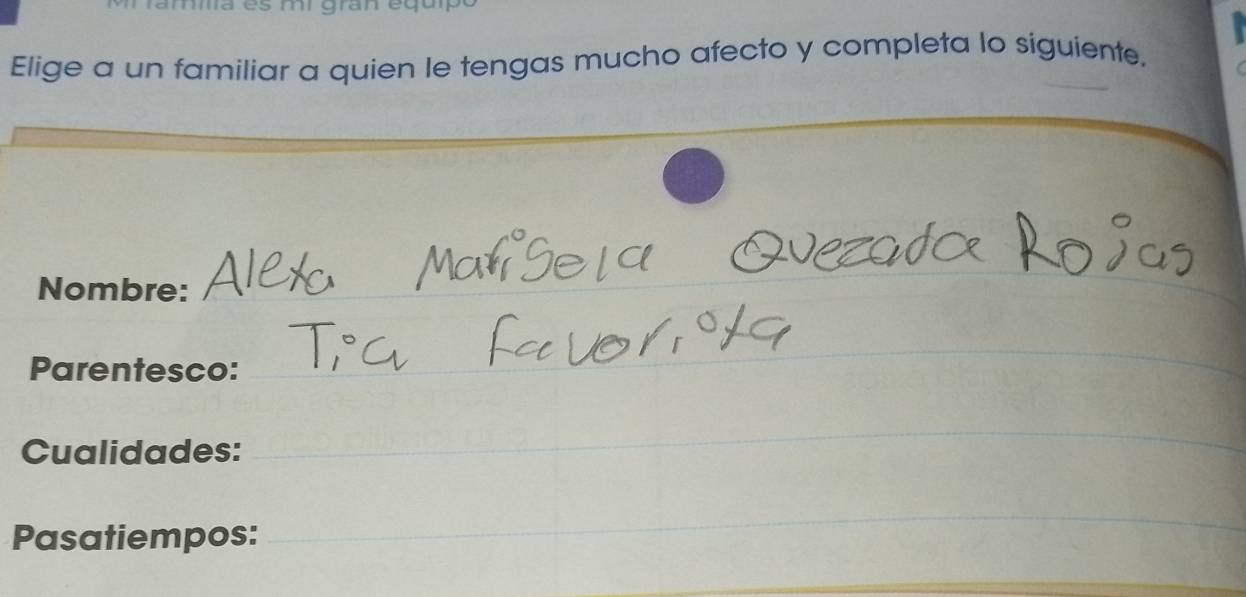 Mi familia es mi gran equipo
Elige a un familiar a quien le tengas mucho afecto y completa lo siguiente.
Nombre: Alexa Marisela Quezada Rojas
Parentesco: Tia favorita
Cualidades:
Pasatiempos: